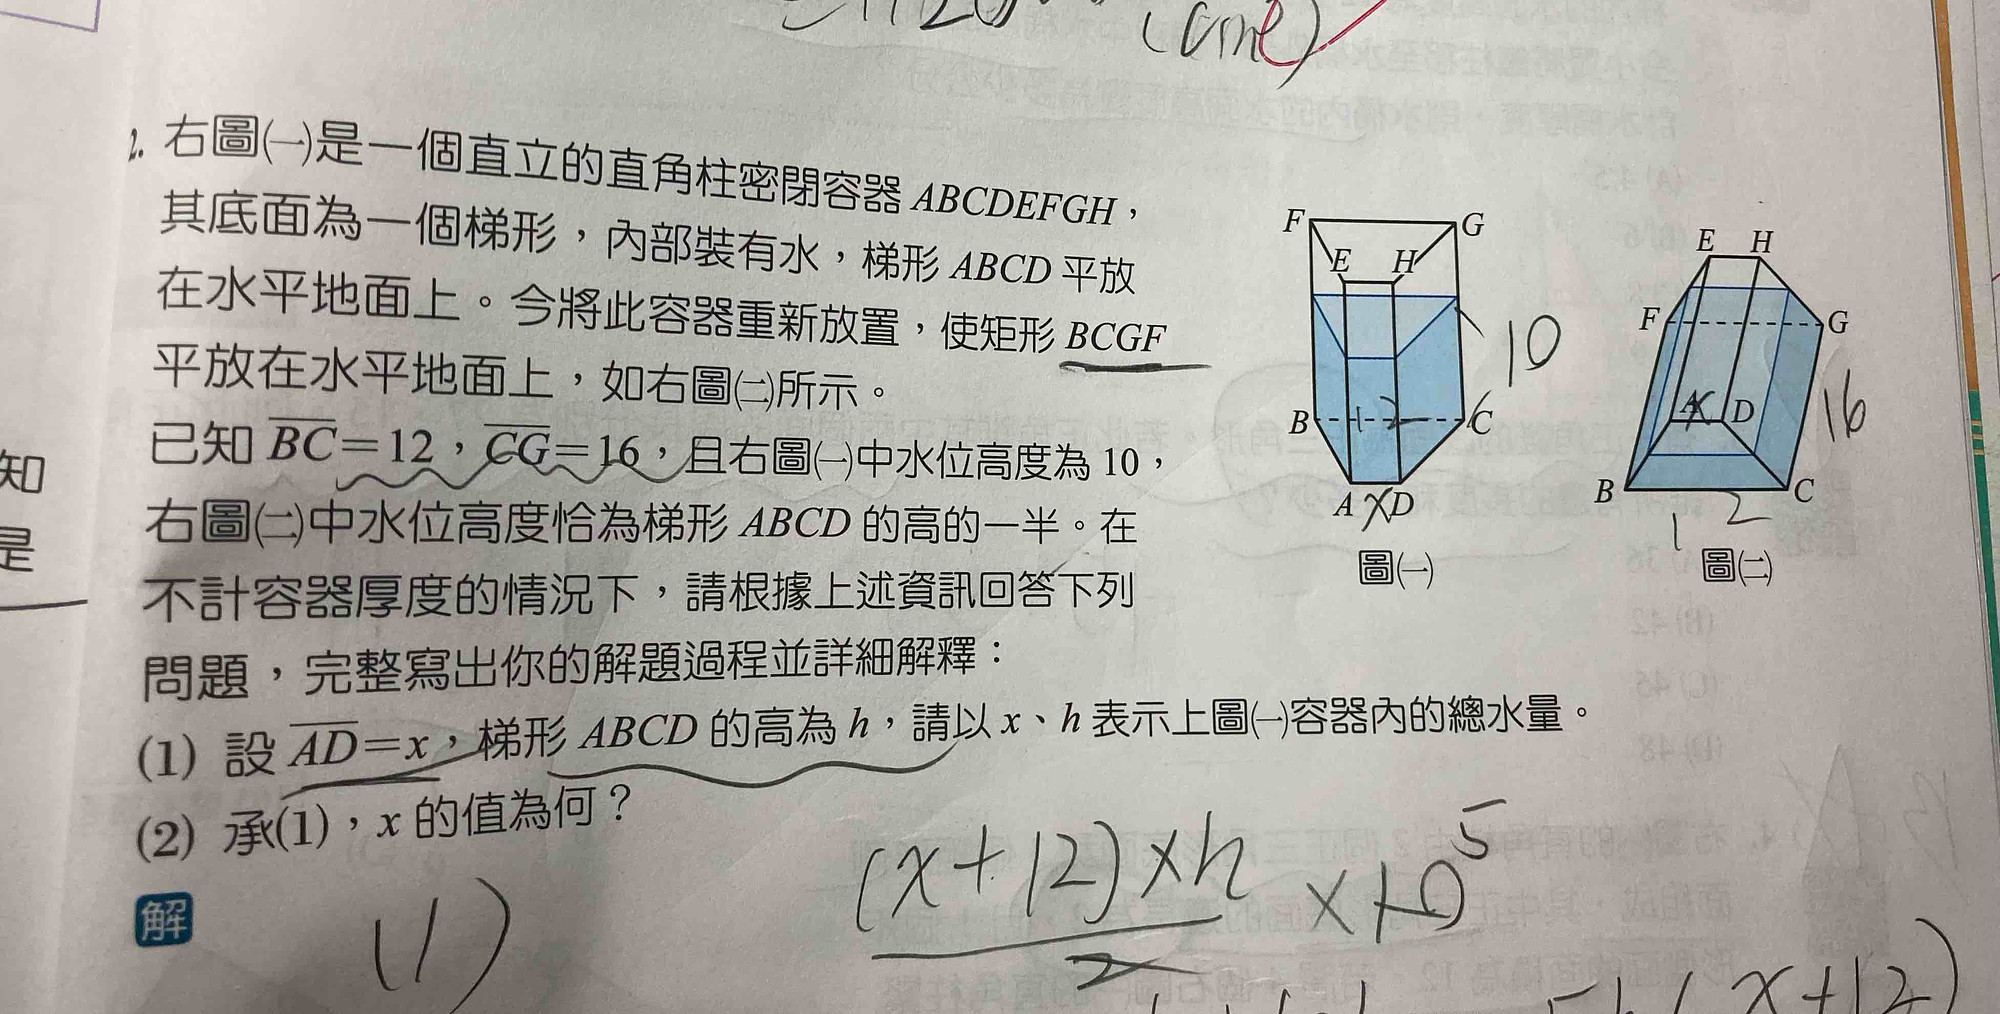 (cm²)
2. 右圖㈠是一個直立的直角柱密閉容器 ABCDEFGH,
其底面為一個梯形,內部裝有水,梯形 ABCD 平放
在水平地面上。今將此容器重新放置,使矩形 BCGF
平放在水平地面上,如右圖㈡所示。
已知 BC=12,CG=16,且右圖㈠中水位高度為 10,
右圖㈡中水位高度恰為梯形 ABCD 的高的一半。在
不計容器厚度的情況下,請根據上述資訊回答下列
問題,完整寫出你的解題過程並詳細解釋:
(1) 設 AD=x,梯形 ABCD 的高為 h,請以 x、h 表示上圖㈠容器內的總水量。
(2) 承(1),x 的值為何?
F G
E H
10
B 12 C
A x D
圖㈠
E H
F G
A x D
16
B C
12
圖㈡
知
是
解
(1) (x+12)×h/2 ×10 5
(x+12)